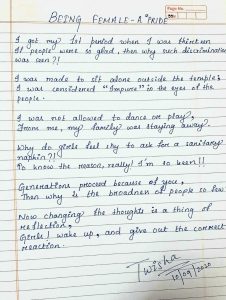 BEING FEMALE - A "PRIDE"
Page No.
I got my 1st period when I was thirteen
If people were so glad, then why such discrimination
was seen?!
I was made to sit alone outside the temple;
I was considered "Impure" in the eyes of the
people.
I was not allowed to dance or play,
From me, my family was staying away.
Why do girls feel shy to ask for a sanitary
napkin?!
To know the reason, really! I'm so keen!!
Generations proceed because of you,
Then why is the broadness of people so few
Now changing the thoughts is a thing of
reflection,
Girls! wake up, and give out the correct
reaction.
Twisha
10/09/2020